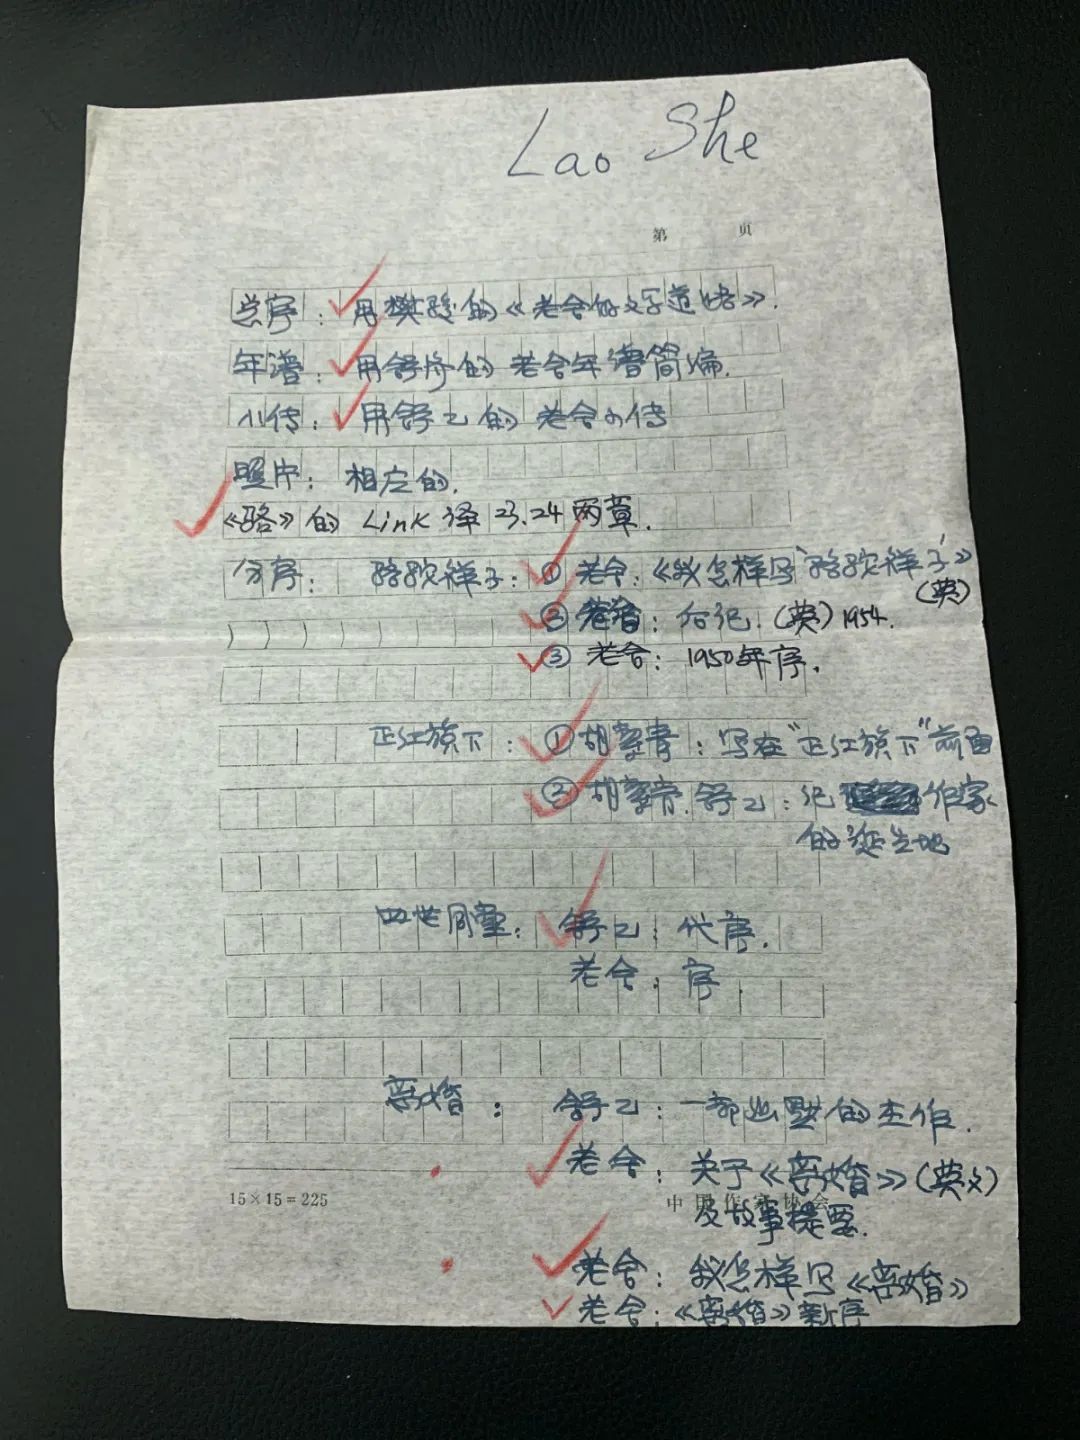 Lao She
第 页
总序：用樊骏的《老舍的文学道路》.
年谱：用舒济的老舍年谱简编.
小传：用舒乙的老舍小传
照片：相应的.
《骆》的 Link 译 23.24 两章.
分序： 骆驼祥子：① 老舍：《我怎样写‘骆驼祥子’》
(英)
② 老舍：后记.（英）1954.
③ 老舍：1950年序.
正红旗下：① 胡絜青：写在“正红旗下”前面
② 胡絜青.舒乙：记 作家
的诞生地
四世同堂：舒乙：代序.
老舍：序.
离婚： 舒乙：一部幽默的杰作.
老舍：关于《离婚》（英文）
15×15=225 中国作家协会
及故事提要.
老舍：我怎样写《离婚》
老舍：《离婚》新序